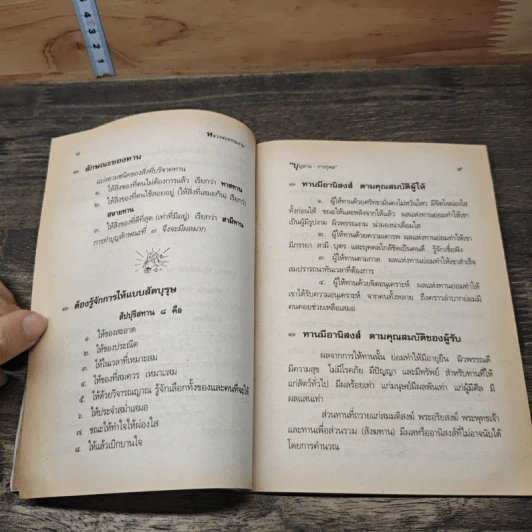 ๘
หลวงพ่อจรัญ
๑ ลักษณะของทาน
แบ่งตามชนิดของสิ่งที่บริจาคทาน
๑. ให้สิ่งของที่ตนไม่ต้องการแล้ว เรียกว่า ทาสทาน
๒. ให้สิ่งของที่ตนใช้สอยอยู่ (ให้สิ่งที่เสมอกัน) เรียกว่า
สหายทาน
๓. ให้สิ่งของที่ดีที่สุด (เท่าที่มีอยู่) เรียกว่า สามีทาน
การทำบุญลักษณะที่ ๓ จึงจะมีผลมาก
๑ ต้องรู้จักการให้แบบสัตบุรุษ
สัปปุริสทาน ๘ คือ
๑. ให้ของสะอาด
๒. ให้ของประณีต
๓. ให้ในเวลาที่เหมาะสม
๔. ให้ของที่สมควร เหมาะสม
๕. ให้ด้วยวิจารณญาณ รู้จักเลือกทั้งของและคนที่จะให้
๖. ให้ประจำสม่ำเสมอ
๗. ขณะให้ทำใจให้ผ่องใส
๘. ให้แล้วเบิกบานใจ
"บุญทาน - การกุศล"
๙
๑ ทานมีอานิสงส์ ตามคุณสมบัติผู้ให้
๑. ผู้ให้ทานด้วยศรัทธามั่นคงไม่หวั่นไหว มีจิตใจผ่องใส
ทั้งก่อนให้ ขณะให้และหลังจากให้แล้ว ผลแห่งทานย่อมทำให้เขา
เป็นผู้มีรูปงาม ผิวพรรณงาม น่ามองน่าเลื่อมใส
๒. ผู้ให้ทานด้วยความเคารพ ผลแห่งทานย่อมทำให้เขา
มีภรรยา สามี บุตร และบุคคลใกล้ชิดเป็นคนดี รู้จักเชื่อฟัง
๓. ผู้ให้ทานตามกาล ผลแห่งทานย่อมทำให้เขาสำเร็จ
สมปรารถนาทันเวลาที่ต้องการ
๔. ผู้ให้ทานด้วยจิตอนุเคราะห์ ผลแห่งทานย่อมทำให้
เขาได้รับความอนุเคราะห์ จากคนทั้งหลาย ถึงคราวลำบากย่อมมี
คนคอยช่วยเหลือเสมอ
๑ ทานมีอานิสงส์ ตามคุณสมบัติของผู้รับ
ผลจากการให้ทานนั้น ย่อมทำให้มีอายุยืน ผิวพรรณดี
มีความสุข ไม่มีโรคภัย มีปัญญา และมีทรัพย์ สำหรับทานที่ให้
แก่สัตว์ทั่วไป มีผลร้อยเท่า แก่มนุษย์มีผลพันเท่า แก่ผู้มีศีล มี
ผลแสนเท่า
ส่วนทานที่ถวายแก่สมมติสงฆ์ พระอริยสงฆ์ พระพุทธเจ้า
และทานเพื่อส่วนรวม (สังฆทาน) มีผลหรืออานิสงส์ที่ไม่อาจนับได้
โดยการคำนวณ
4
3
2
1